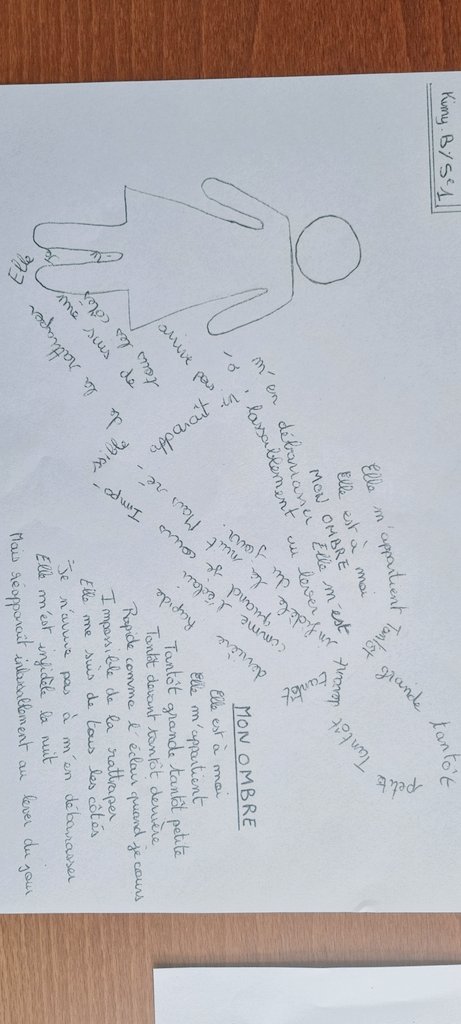 Kimy. B / 5e1
Elle m'appartient Tantôt grande tantôt
petite
Elle est à moi
MON OMBRE
Tantôt
devant
tantôt
derrière
Rapide
comme l'éclair
quand je
cours
Impo-
de
la rattraper
Elle
me suis de
tous les côtés
Je
n'
arrive pas
à
m'en
Elle m'est
infidèle
la nuit
Mais ré-
lassablement au lever
du jour.
MON OMBRE
Elle est à moi
Elle m'appartient
Tantôt grande tantôt petite
Tantôt devant tantôt derrière
Rapide comme l'éclair quand je cours
Impossible de la rattraper
Elle me suis de tous les côtés
Je n'arrive pas à m'en débarasser
Elle m'est infidèle la nuit
Mais réapparait inlassablement au lever du jour